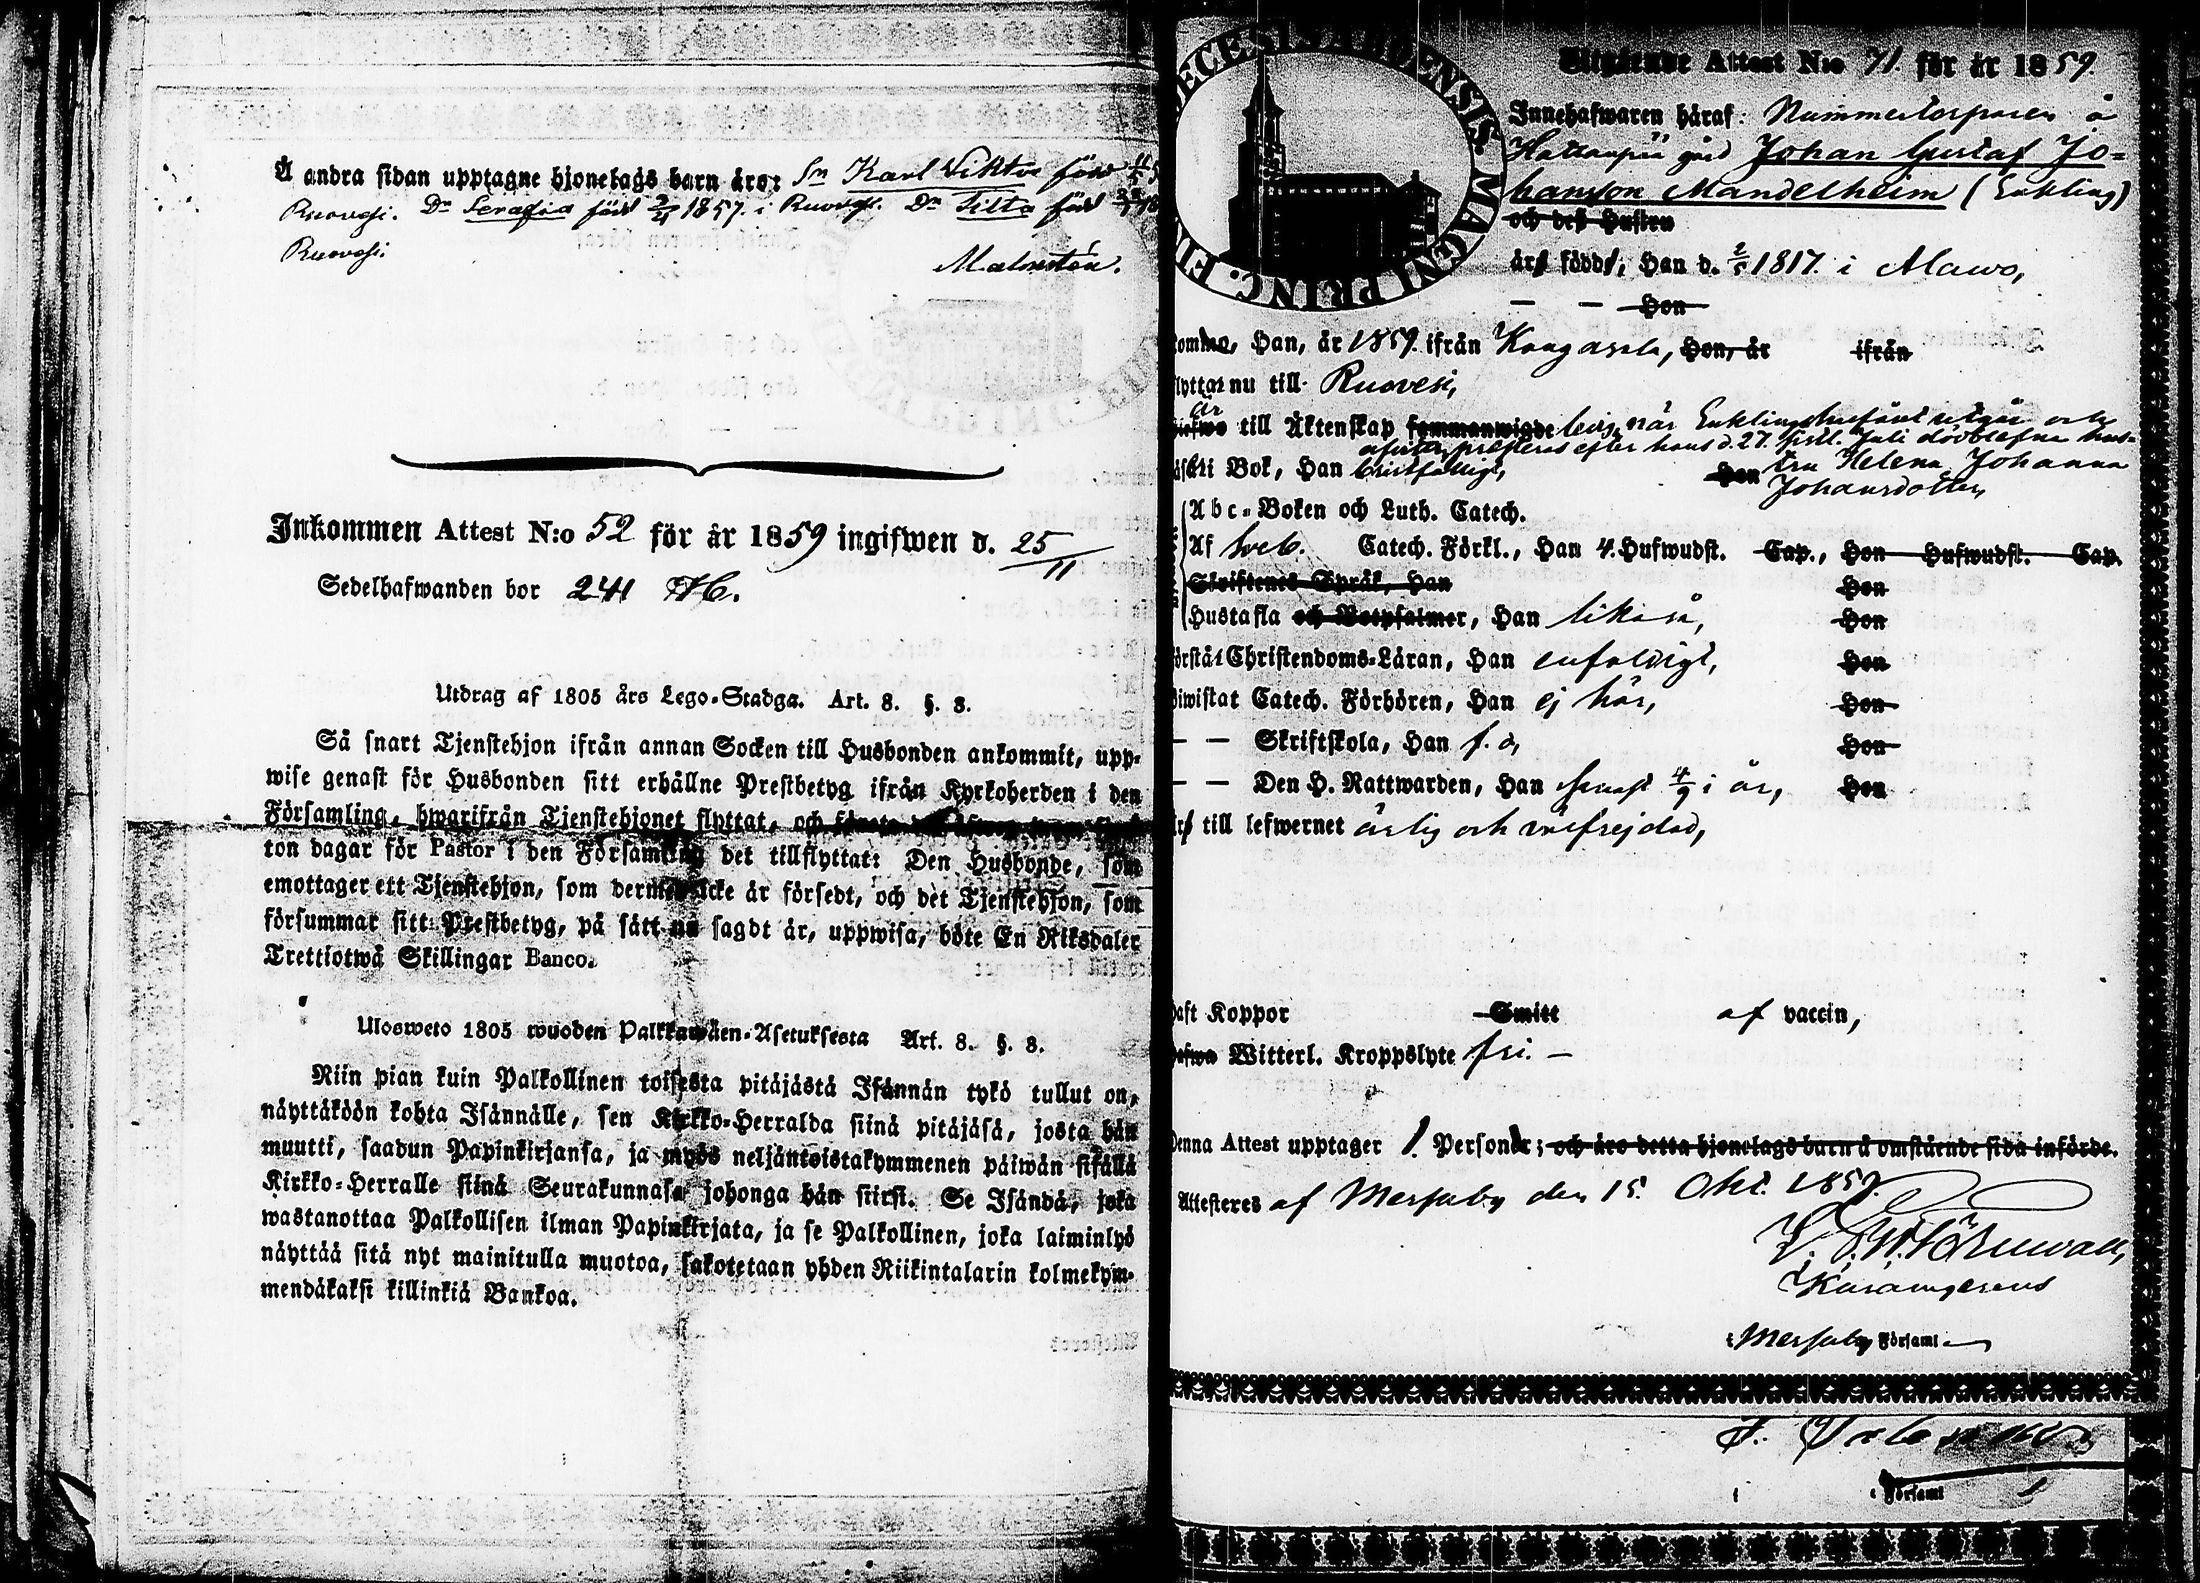 Å andra sidan upptagne hjonelags barn äro: Sn Karl Viktor född
Ruovesi. Dr Serafia född 1857. i Ruovesi. Dr Tilta född
Ruovesi.
Malmstén.
Inkommen Attest N:o 52 för år 1859 ingifwen d. 25/11
Sedelhafwanden bor 241
Utdrag af 1805 års Lego-Stadga. Art. 8. §. 8.
Så snart Tjenstehjon ifrån annan Socken till Husbonden ankommit, upp-
wise genast för Husbonden sitt erhållne Prestbetyg ifrån Kyrkoherden i den
Församling, hwarifrån Tjenstehjonet flyttat, och
ton dagar för Pastor i den Församling det tillflyttat: Den Husbonde, som
emottager ett Tjenstehjon, som dermed icke är försedt, och det Tjenstehjon, som
försummar sitt Prestbetyg, på sätt nu sagdt är, uppwisa, böte En Riksdaler
Trettiotwå Skillingar Banco.
Uloswето 1805 wuoden Palkkawäen-Asetuksesta Art. 8. §. 8.
Niin pian kuin Palkollinen toisesta pitäjästä Isännän tykö tullut on,
näyttäköön kohta Isännälle, sen Kirkko-Herralda siinä pitäjäsä, josta hän
muutti, saadun Papinkirjansa, ja myös neljäntoistakymmenen päiwän sisällä
Kirkko-Herralle siinä Seurakunnasa johonga hän siirsi. Se Isändä, joka
wastanottaa Palkollisen ilman Papinkirjata, ja se Palkollinen, joka laiminlyö
näyttää sitä nyt mainitulla muotoa, sakotetaan yhden Riikintalarin kolmekym-
mendäkaksi killinkiä Bankoa.
DIECESIS ABOENSIS MAGNI PRINC. FIN
Utgående Attest N:o 71. för år 1859.
Innehafwaren häraf: Nummertorparen å
Hattanpää gård Johan Gustaf Jo-
hansson Mandelheim (Enkling)
och deß Hustru
äro födde, Han d. 2/5 1817. i Mawo,
— — Hon
komne, Han, år 1859. ifrån Kangasala, Hon, år ifrån
flyttar nu till Ruovesi,
är
till Äktenskap sammanwigde ledig, när Enklings
efter hans d. 27. sistl. Juli dödblefna hus-
i Bok, Han bristfälligt, Hon tru Helena Johanna
Johansdotter,
Abc-Boken och Luth. Catech.
Af Sveb. Catech. Förkl., Han 4. Hufwudst. Cap., Hon Hufwudst. Cap.
Skriftenes Språk, Han Hon
Hustafla och Botpsalmer, Han likaså, Hon
förstå Christendoms-Läran, Han enfaldigt, Hon
biwistat Catech. Förhören, Han ej här, Hon
— — Skriftskola, Han f. d, Hon
— — Den H. Nattwarden, Han senast 4/9 i år, Hon
till lefwernet ärlig och välfrejdad,
haft Koppor Smitt af vaccin,
Hafwa Witterl. Kroppslyte fri. —
Denna Attest upptager 1. Person; och äro detta hjonelags barn å omstående sida införde.
Attesteres af Messuby den 15. Okt. 1859.
i Messuby Församl
i Församl